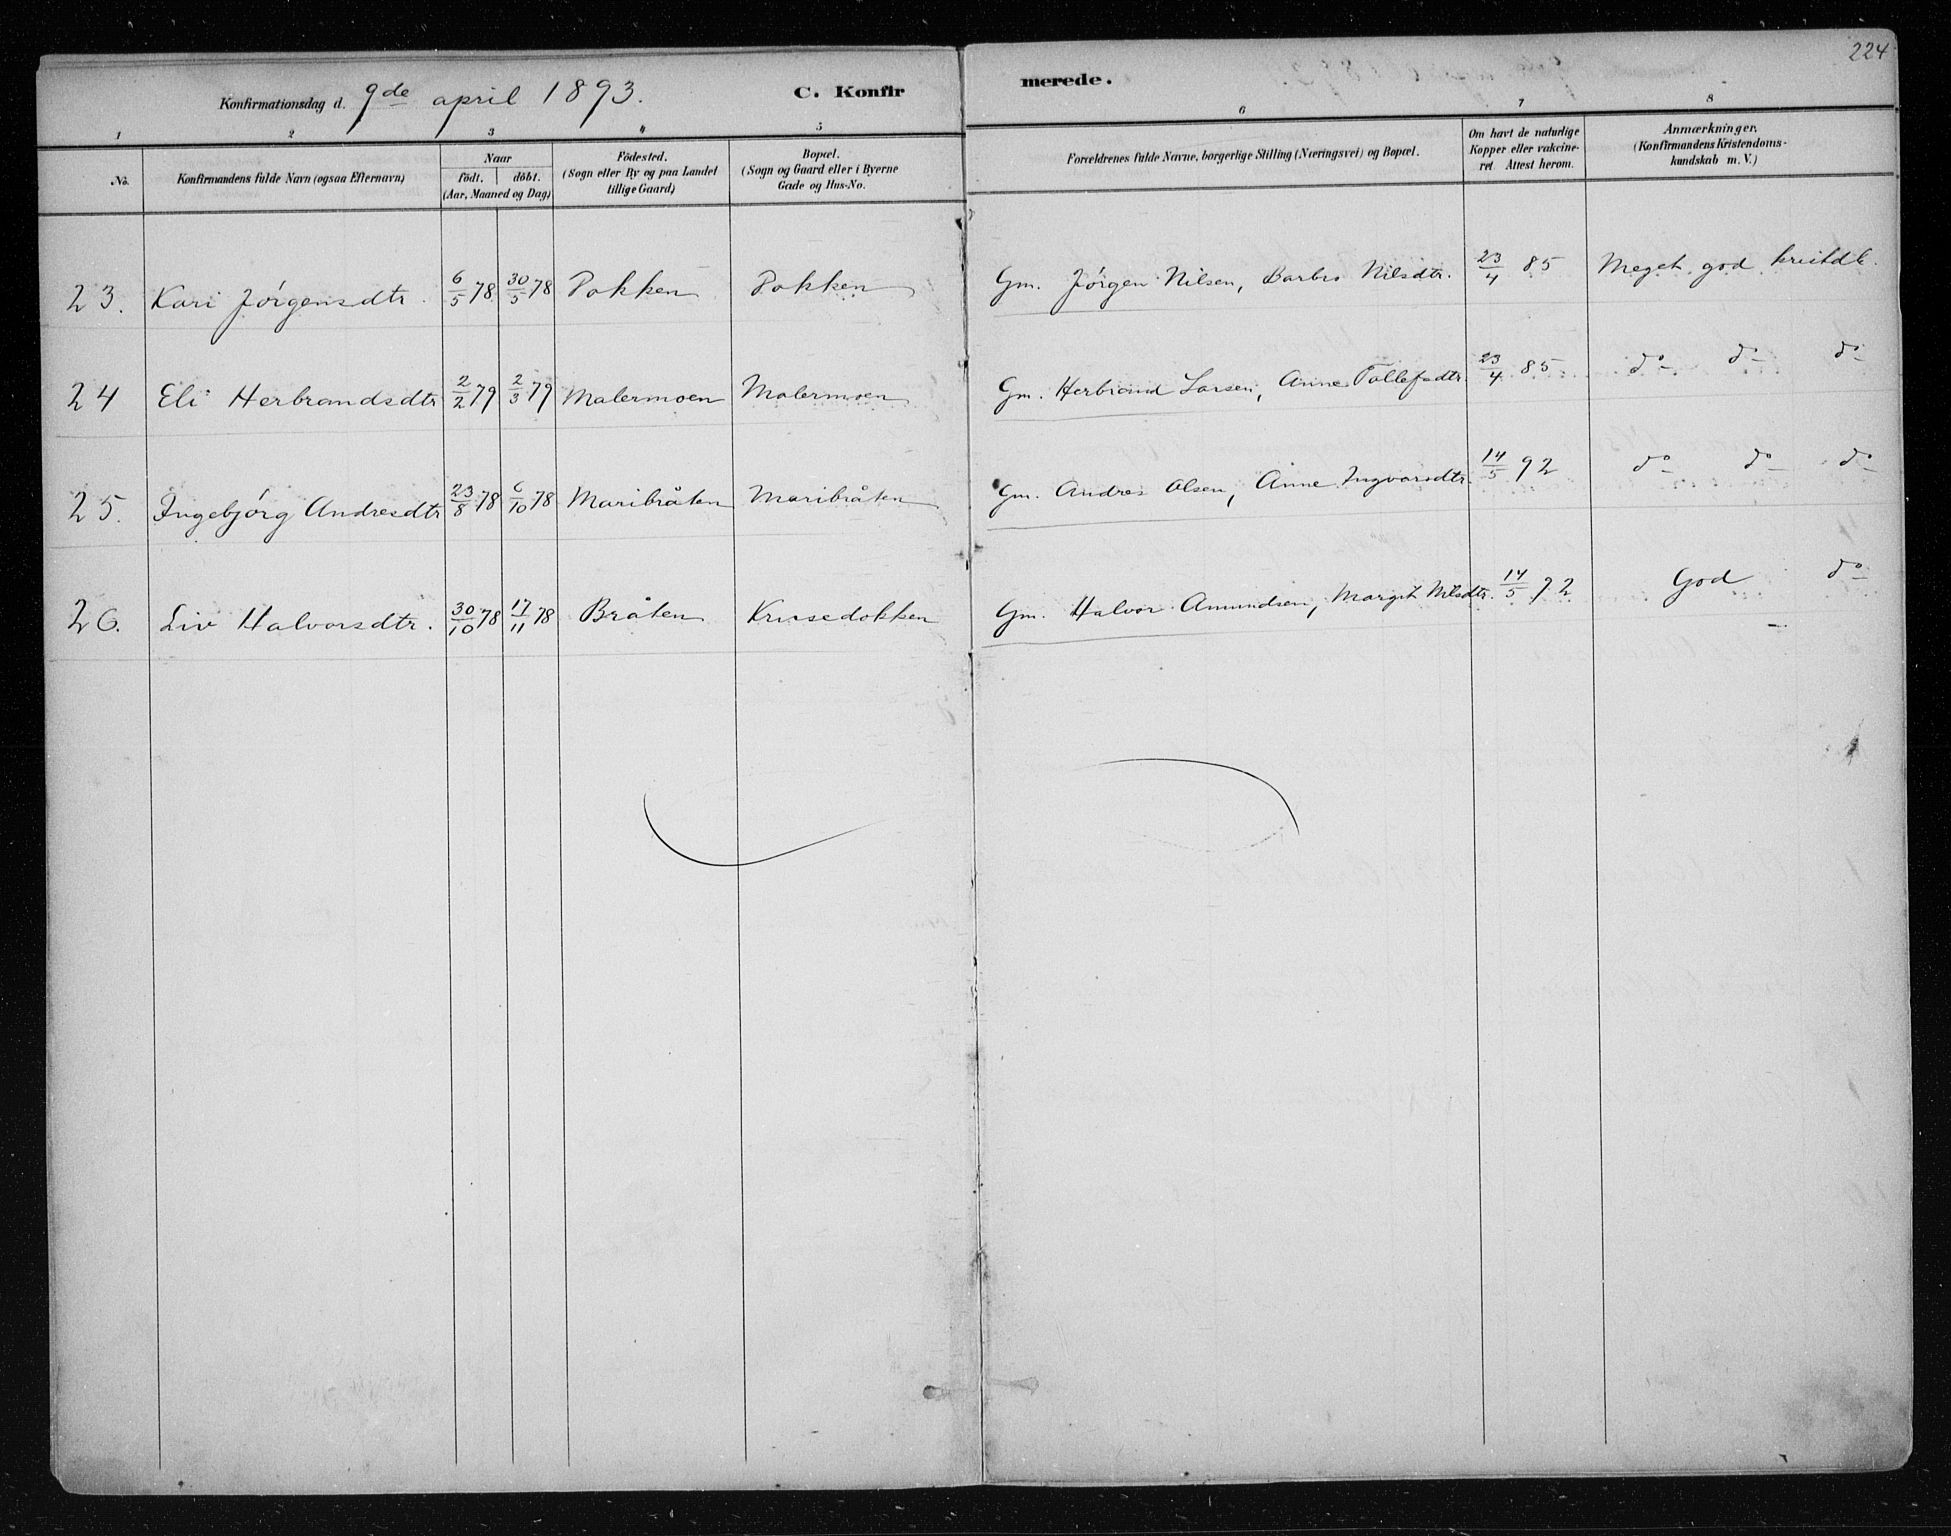 224
Konfirmationsdag d. 9de april 1893.
C. Konfir
merede.
1 2 3 4 5 6 7 8
No.
Konfirmandens fulde Navn (ogsaa Efternavn)
Naar
födt. döbt.
(Aar, Maaned og Dag)
Födested.
(Sogn eller By og paa Landet
tillige Gaard)
Bopæl.
(Sogn og Gaard eller i Byerne
Gade og Hus-No.
Forældrenes fulde Navne, borgerlige Stilling (Næringsvei) og Bopæl.
Om havt de naturlige
Kopper eller vakcine-
ret. Attest herom.
Anmærkninger.
(Konfirmandens Kristendoms-
kundskab m. V.)
23. Kari Jörgensdtr. 6/5 78 30/5 78 Pokken Pokken Gm. Jörgen Nilsen, Barbro Nilsdtr. 23/4 85 Meget god kristdk.
24 Eli Herbrandsdtr 2/2 79 2/3 79 Malermoen Malermoen Gm. Herbrand Larsen, Anne Tollefsdtr. 23/4 85 do do do
25. Ingebjörg Andresdtr 23/8 78 6/10 78 Maribråten Maribråten Gm. Andres Olsen, Anne Ingvarsdtr. 14/5 92 do do do
26. Liv Halvorsdtr. 30/10 78 17/11 78 Bråten Krusedokken Gm. Halvor Amundsen, Margit Nilsdtr. 14/5 92 God do